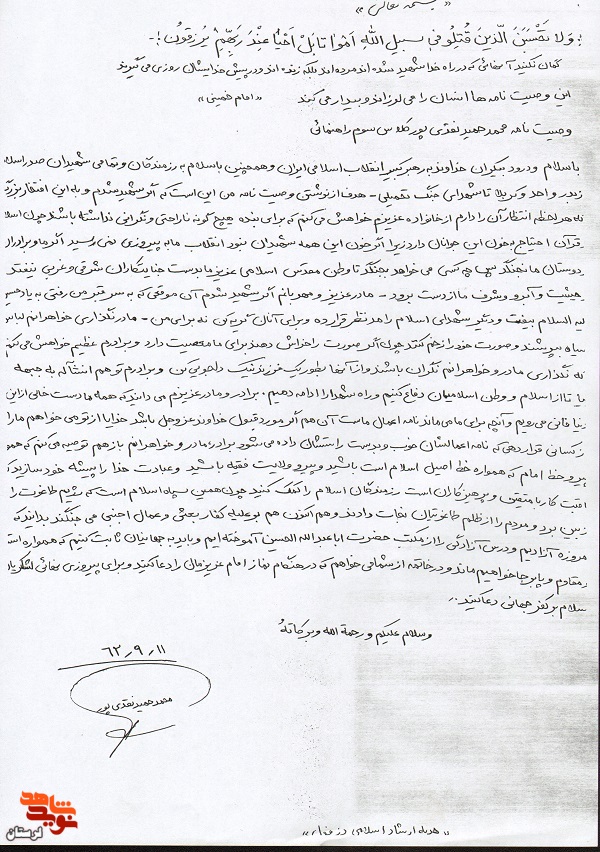 « بسمه تعالی »
؛ وَلا تَحْسَبَنَ الّذینَ قُتِلُو فی سبیل اللّه اَمْواتا بَلْ اَحْیاُ عِنْدَ رَبِّهِمْ یُرزَقُون ؛-
گمان نکنید آنهائی که در راه خدا شهید شده اند مرده اند بلکه زنده اند و در پیش خدایشان روزی می گیرند
این وصیت نامه ها انسان را می لرزاند و بیدار می کند « امام خمینی »
وصیت نامه محمد حمید نقدی پور کلاس سوم راهنمائی
باسلام و درود بیکران خداوند به رهبر کبیر انقلاب اسلامی ایران و همچنین باسلام به رزمندگان و تمامی شهیدان صدر اسلا
زبدر و احد و کربلا تا شهدای جنگ تحمیلی - هدف از نوشتن وصیت نامه من این است که اگر شهید شدم و به این افتخار بزرگ
که هر لحظه انتظار آن را دارم از خانواده عزیزم خواهش می کنم که برای بنده هیچ گونه ناراحتی و نگرانی نداشته باشند چون اسلا
قرآن احتیاج به خون این جوانان دارد زیرا اگر خون این همه شهیدان نبود انقلاب ما به پیروزی نمی رسید اگر ما و برادرا
ر دوستان ما نجنگد پس چه کسی می خواهد بجنگد تا وطن مقدس اسلامی عزیز ما بدست جنایتکاران شرقی و غربی نیفتد
حیثیت و آبرو و شرف ما از دست برود - مادر عزیز و مهربانم اگر شهید شدم آن موقعی که به سر قبر من رفتی به یاد حسین
لیه السلام بیفت و دیگر شهدای اسلام را مد نظر قرار ده و برای آنان گریه کن نه برای من - مادر نگذاری خواهرانم لباس
سیاه بپوشند و صورت خود را زخم کنند چون اگر صورت را خراش دهند برای ما معصیت دارد و برادرم عظیم خواهش می کنم
که نگذاری مادر و خواهرانم نگران باشند و از آنها بطور یک فرزند نیک دلجویی کن و برادرم تو هم انشآله به جبهه
یا تا از اسلام و وطن اسلامیمان دفاع کنیم و راه شهدا را ادامه دهیم . برادر و مادر عزیزم می دانید که همه ما دست خالی از این
دنیا فانی می رویم و آنچه برای ما می ماند نامه اعمال ماست آن هم اگر مورد قبول خداوند عز و جل باشد خدایا از تو می خواهم ما را
ز کسانی قرار دهی که نامه اعمالشان خوب و بدست راستشان داده می شود برادر، مادر و خواهرانم باز هم توصیه می کنم که همو
یرو خط امام که همواره خط اصیل اسلام است باشید و پیرو ولایت فقیه باشید و عبادت خدا را پیشه خود سازید که
اقبت کار با متقین و پرهیزکاران است رزمندگان اسلام را کمک کنید چون همین سپاه اسلام است که رژیم طاغوت را
زبین برد و مردم را از ظلم طاغوتیان نجات دادند و هم اکنون هم بر علیه کفار بعثی و عمال اجنبی می جنگند بدانند که
مروزه آزادیم و درس آزادگی را از مکتب حضرت اباعبدالله الحسین آموخته ایم و باید به جهانیان ثابت کنیم که همواره است
ر مقاوم و پابرجا خواهیم ماند و در خاتمه از شما می خواهم که در هنگام نماز امام عزیزمان را دعا کنید و برای پیروزی نهائی لشکریان
سلام بر کفر جهانی دعا کنید..
وسلام علیکم و رحمة الله و برکاتهُ
۶۲٫۹٫۱۱
محمد حمید نقدی پور
نوید شاهد
لرستان